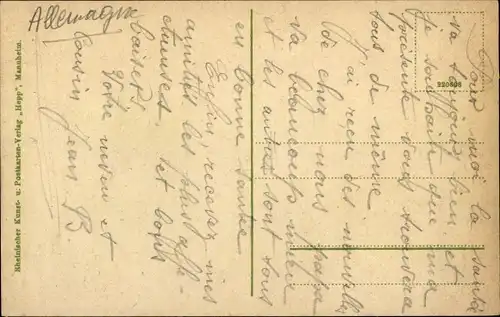 Allemagne
Pour moi la santé
va toujours bien, et
je souhaite que ma
présente vous trouvera
tous de même
J'ai reçu des nouvelles
de chez nous papa
va beaucoup mieux
et les autres sont tous
en bonne santé
Enfin, recevez mes
amitiés les plus affec-
tueuses, et bons
baisers
Votre neveu et
cousin
Jean B
Rheinischer Kunst- u. Postkarten-Verlag „Hepp", Mannheim.